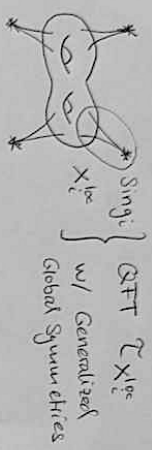 Sing i
X_i^loc
} QFT τ_{X_i^loc}
w/ Generalized
Global Symmetries